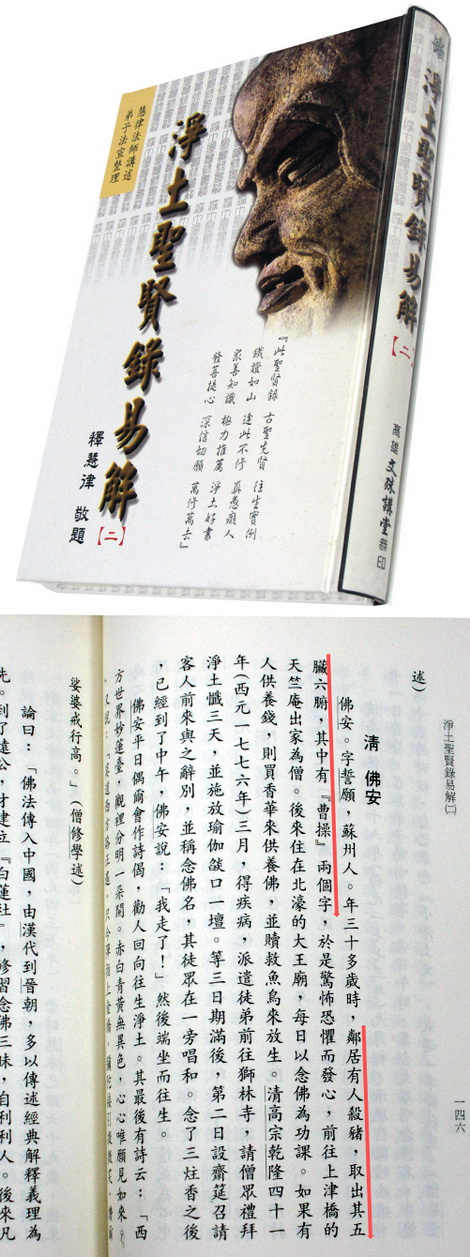 慧律法師講述
弟子法宣整理
淨土聖賢錄易解
【二】
釋慧律 敬題
『此聖賢錄 古聖先賢 往生實例
鐵證如山 達此不修 真愚癡人
眾善知識 極力推薦 淨土好書
發菩提心 深信切願 萬修萬去』
淨土聖賢錄易解
【二】
高雄文殊講堂恭印
淨土聖賢錄易解㈡
一四六
述）
清 佛安
佛安。字誓願，蘇州人。年三十多歲時，鄰居有人殺豬，取出其五
臟六腑，其中有『曹操』兩個字，於是驚怖恐懼而發心，前往上津橋的
天竺庵出家為僧。後來住在北濠的大王廟，每日以念佛為功課。如果有
人供養錢，則買香華來供養佛，並贖救魚鳥來放生。清高宗乾隆四十一
年（西元一七七六年）三月，得疾病，派遣徒弟前往獅林寺，請僧眾禮拜
淨土懺三天，並施放瑜伽燄口一壇。等三日期滿後，第二日設齋筵召請
客人前來與之辭別，並稱念佛名，其徒眾在一旁唱和。念了三炷香之後
，已經到了中午，佛安說：「我走了！」然後端坐而往生。
佛安平日偶爾會作詩偈，勸人回向往生淨土。其最後有詩云：「西
方世界妙蓮臺，觀裡分明一朵開。赤白青黃無異色，心心唯願見如來
娑婆戒行高。」（僧修學述）
論曰：「佛法傳入中國，由漢代到晉朝，多以傳述經典解釋義理為
先。到了遠公，才建立『白蓮社』，修習念佛三昧，自利利人。後來凡